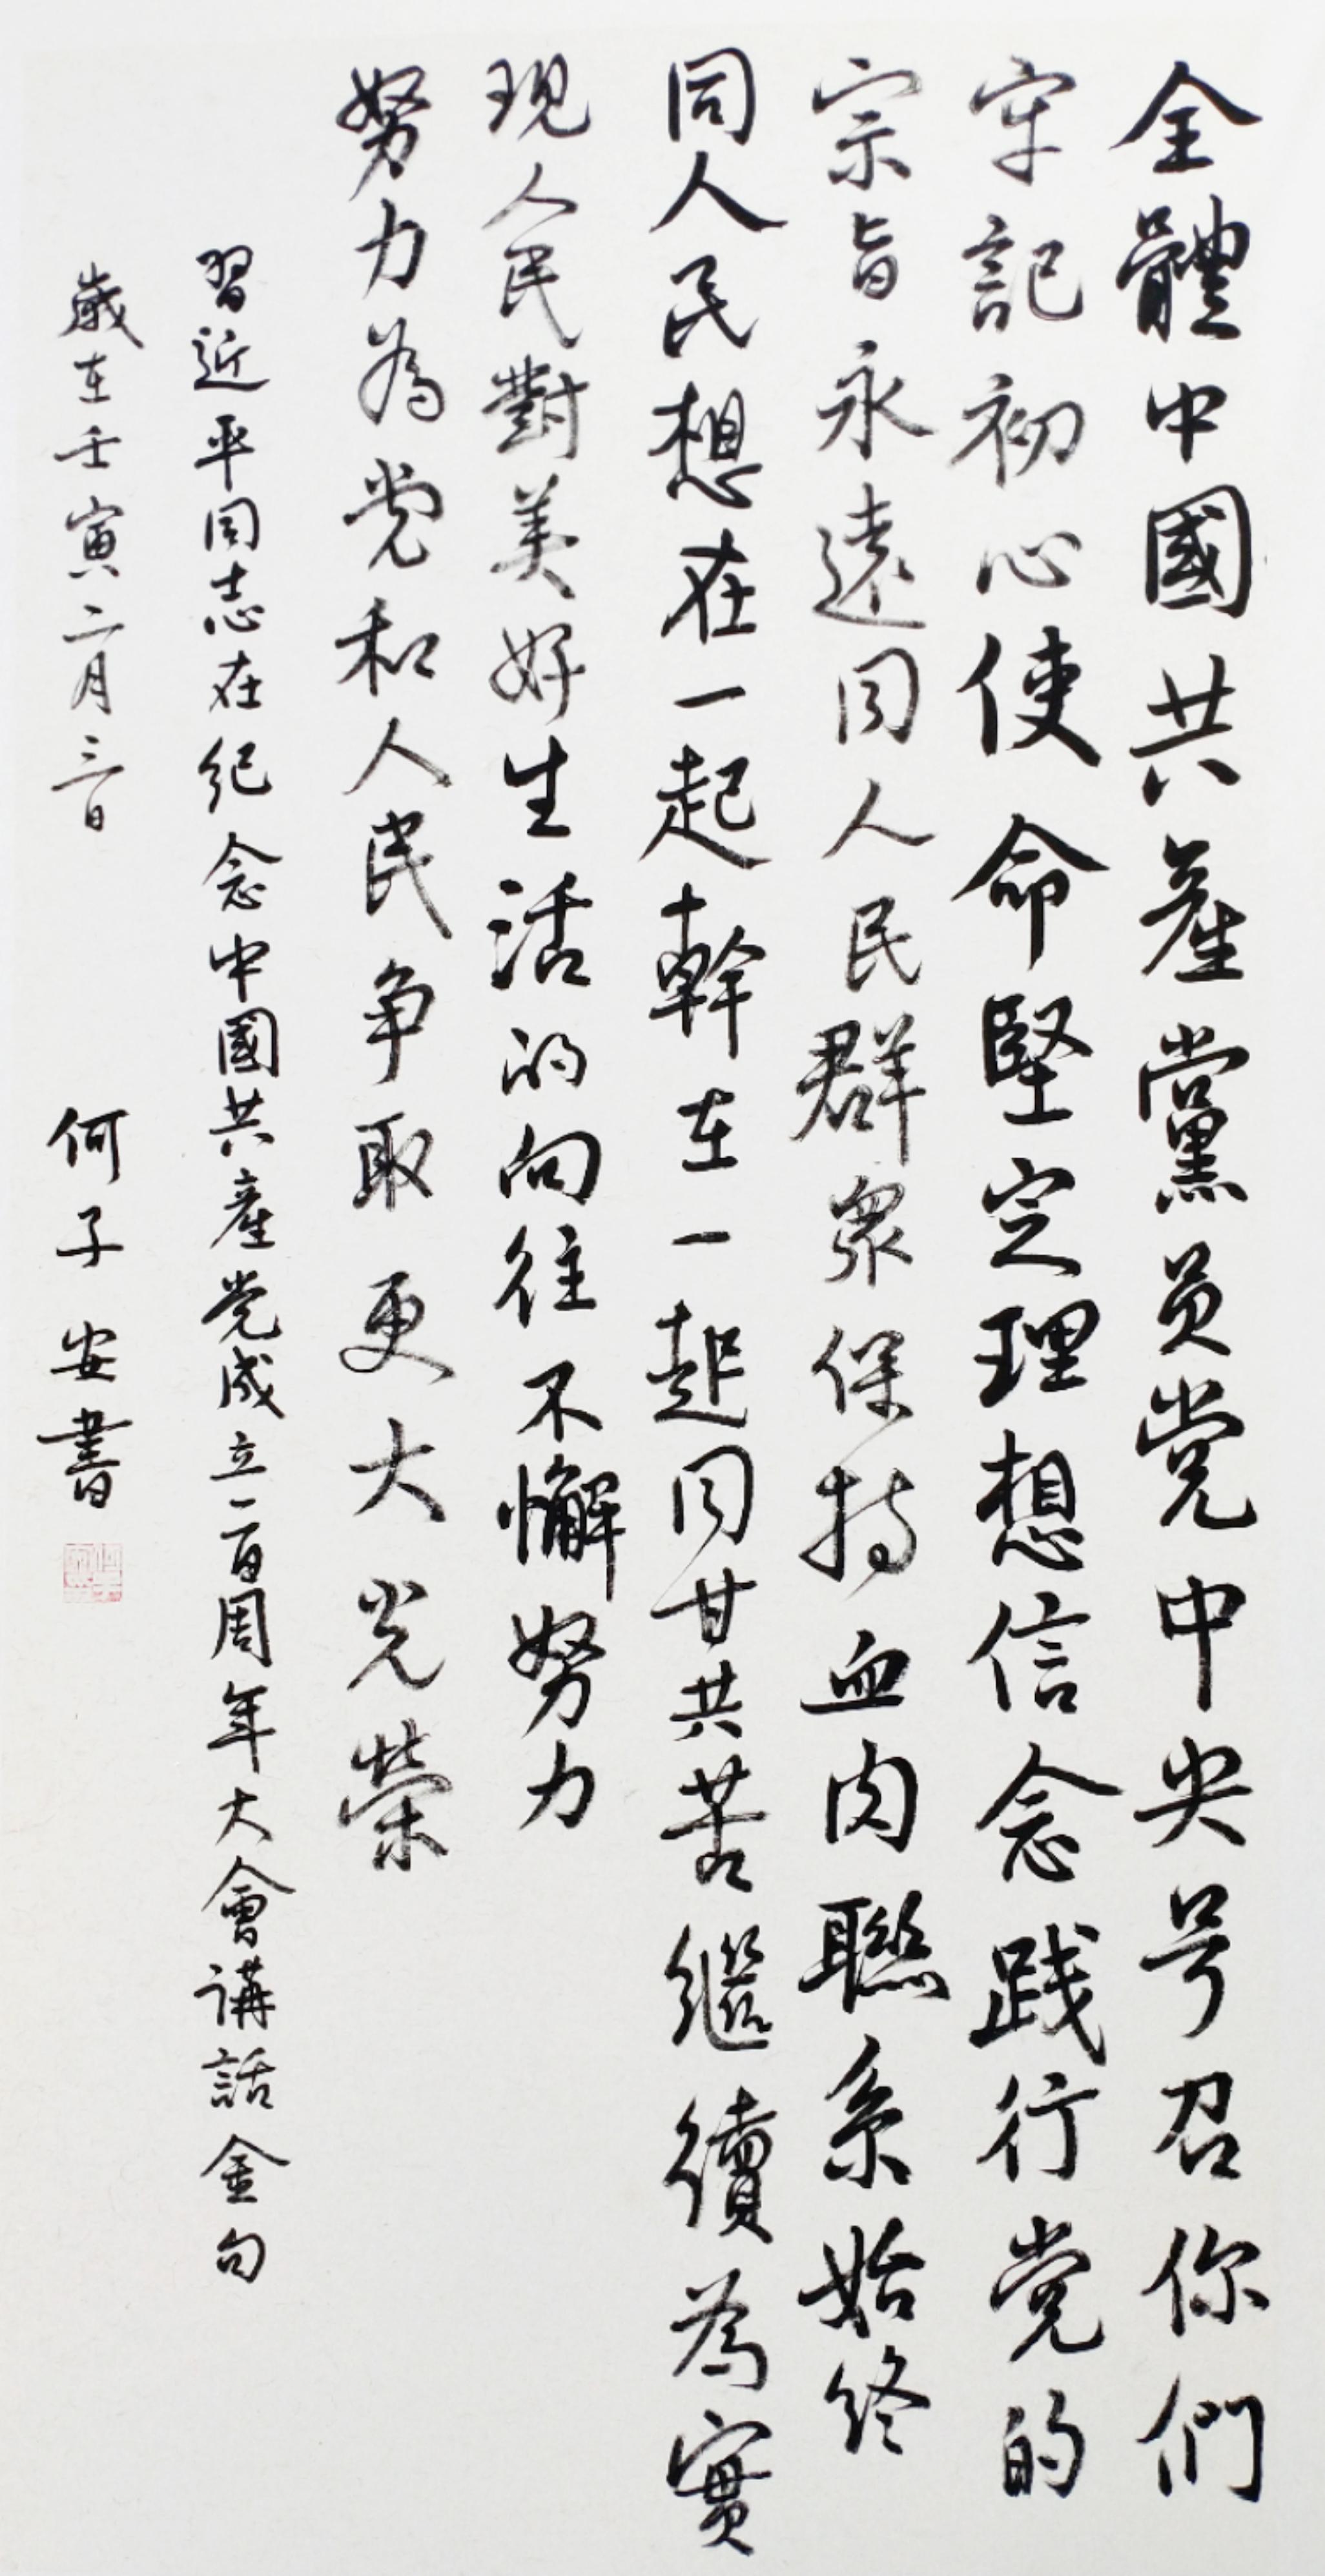 全體中國共產黨員党中央号召你們
牢記初心使命堅定理想信念践行党的
宗旨永遠同人民群眾保持血肉聯系始終
同人民想在一起幹在一起同甘共苦繼續為實
現人民對美好生活的向往不懈努力
努力為党和人民争取更大光榮
習近平同志在纪念中國共產党成立一百周年大會講話金句
歲在壬寅二月三日
何子安書